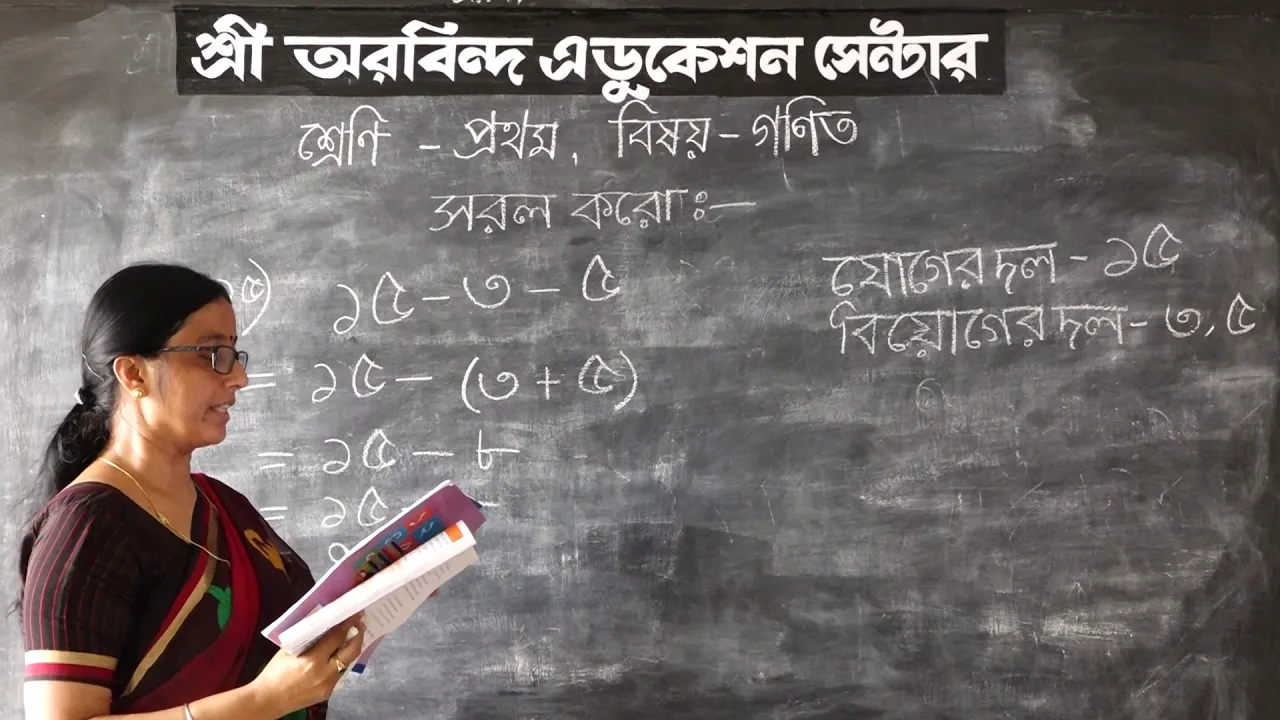 শ্রী অরবিন্দ এডুকেশন সেন্টার
শ্রেণি - প্রথম, বিষয় - গণিত
সরল করো :—
১৫ - ৩ - ৫
= ১৫ - (৩ + ৫)
= ১৫ - ৮
= ১৫
যোগের দল - ১৫
বিয়োগের দল - ৩, ৫